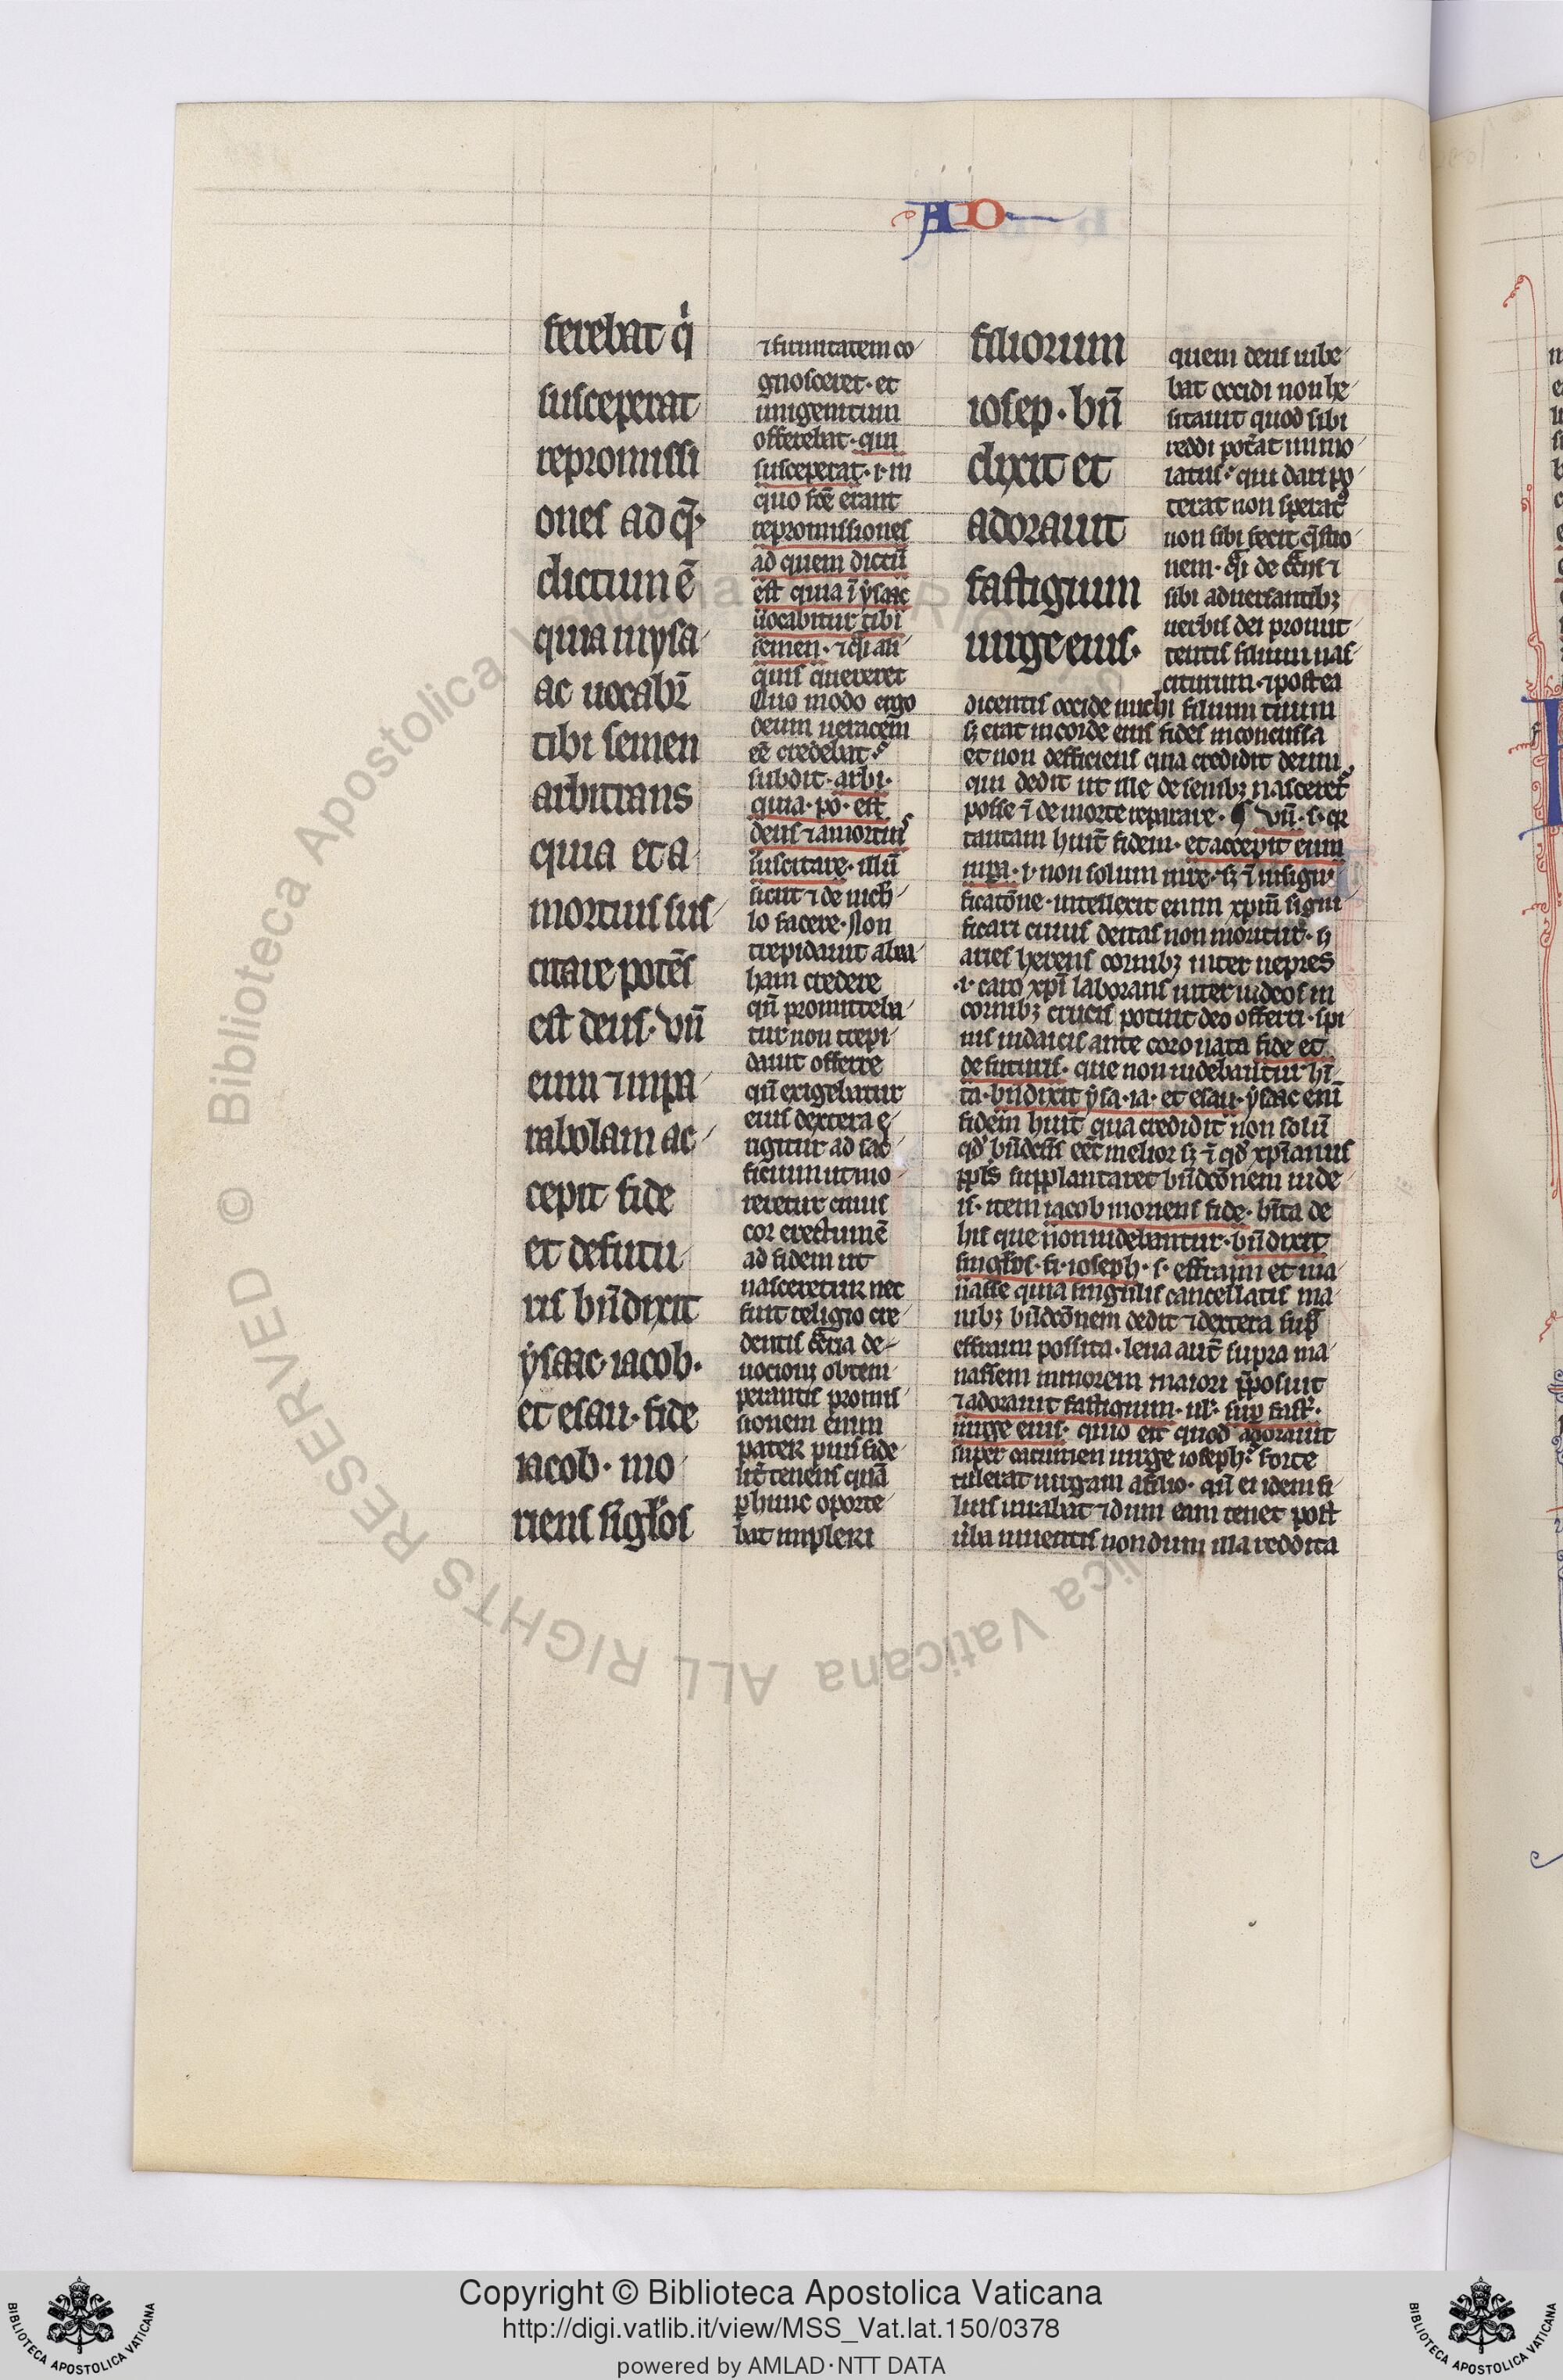 AD
ferebat qi
susceperat
repromissi
ones ad q̄
dictum ē
quia in ysa
ac uocabr̄
tibi semen
arbitrans
quia et a
mortuis sus
citare potēs
est deus. vn̄
eum ⁊ in pa
rabolam ac
cepit fide
et de futu
ris bn̄dixit
ẏsaac. iacob.
et esau. fide
iacob. mo
riens siglos
⁊ firmitatem co
gnosceret. et
unigenitum
offerebat. qui
susceperat. i. in
quo fc̄e erant
repromissiones
ad quem dictū
est quia ī ẏsaac
uocabitur tibi
semen. ⁊ qi ali
quis quereret
Quo modo ergo
deum ueracem
eē credebat
subdit. arbi.
quia. po. est
deus ⁊ a mortuis
suscitare. illū
sicut ⁊ de nich
lo facere. Non
trepidauit abra
ham credere
qn̄ promitteba
tur non trepi
dauit offerre
qn̄ exigebatur
eius dextera e
rigitur ad sac
ficium ut mo
reretur cuius
cor erectum ē
ad fidem ut
nasceretur nec
fuit religio cre
dentis
uocioni obtem
perantis promis
sionem enim
pater pius fide
lit̄ tenens quā
p̄ hunc oporte
bat impleri
filiorum
iosep. bn̄
dixit et
adorauit
fastigium
uirge eius.
quem deus iube
bat occidi non he
sitauit quod sibi
reddi pot̄at immo
latus qui dari po
terat non sperat
non sibi fecit q̄stio
nem. qi de
sibi aduersantibꝫ
uerbis dei promit
tentis filium nas
citurum. ⁊ postea
dicentis occide michi filium tuum
sꝫ erat in corde eius fides inconcussa
et non defficiens quia credidit deum
qui dedit ut ille de senibꝫ nasceret
posse ⁊ de morte reparare. ¶ vn̄. s. qr
tantam huit̄ fidem. et accepit eum
in pa. i. non solum uire. sꝫ ⁊ in signi
ficatōne. intellexit enim xpm̄ signi
ficari cuius deitas non moritur. sꝫ
aries herens cornibꝫ inter uepres
.i. caro xpī laborans inter iudeos in
cornibꝫ crucis potuit deo offerri. spi
nis iudaicis ante coronata fide et
de futuris. que non uidebantur hī
ta. bn̄dixit ẏsa. ia. et esau. ẏsaac enī
fidem huit̄ qua credidit non solū
qd bn̄dc̄us eēt melior sꝫ ⁊ qd xpīanus
ppls supplantaret bn̄dcōnem iude
is. item iacob moriens fide. hīta de
his que non uidebantur. bn̄dixit
singlos. fi. ioseph. s. effraim et ma
nasse quia singulis cancellatis ma
nibꝫ bn̄dcōnem dedit ⁊ dextera sup̄
effraim possita. leua aut̄ supra ma
nassem minorem maiori p̄posuit
⁊ adorauit fastigium. ul. sup̄ fast.
uirge eius. quo est quod adorauit
super cacumen uirge ioseph. forte
tulerat uirgam a filio. qn̄ ei idem fi
lius iurabat ⁊ dum eam tenet post
uba iurentis nondum illa reddita
Copyright © Biblioteca Apostolica Vaticana
http://digi.vatlib.it/view/MSS_Vat.lat.150/0378
powered by AMLAD·NTT DATA
BIBLIOTECA APOSTOLICA VATICANA
BIBLIOTECA APOSTOLICA VATICANA